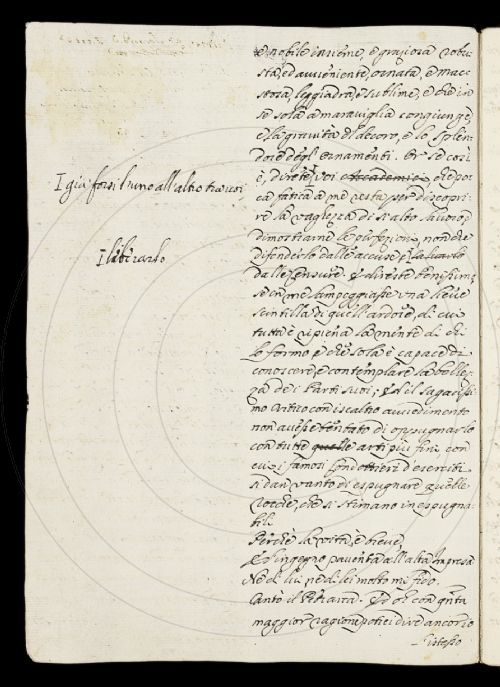 e nobile insieme, e graziosa robu-
sta, ed avveniente, ornata, e mae-
stosa, leggiadra, e sublime, e che in
se sola a maraviglia congiunge,
e la gravità di decoro, e lo splen-
dore degl' ornamenti. Or se così
è, direte voi che po-
ca fatica a me resta per discopri-
re la vaghezza di sì alto lavoro,
dimostrarne le perfezioni, non che
difenderlo dalle accuse,
dalle censure. E direste benissimo
se in me lampeggiasse una lieve
scintilla di quell'ardore, di cui
tutta è ripiena la mente di chi
lo formò e che sola è capace di
conoscere, e contemplare la bellez-
za de i Parti suoi; ed il sagacissi-
mo critico con iscaltro avvedimento
non avesse tentato di oppugnarlo
con tutte quelle arti più fini, con
cui i famosi Condottieri d'eserciti
si dan vanto di espugnare quelle
rocche, che si stimano inespugna-
bili.
Perchè la vista è breve,
E l'ingegno paventa all'alta impresa
Nè di lui, nè di lei molto mi fido.
Cantò il Petrarca. Ed oh con quanta
maggior ragione potrei dire ancor io
l'istesso
I già forsi l'uno all'altro
I liberarlo